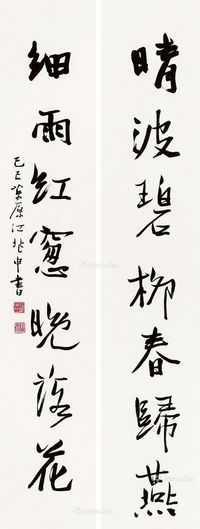 晴波碧柳春歸燕
細雨紅窗晚落花
己巳茶原江兆申書